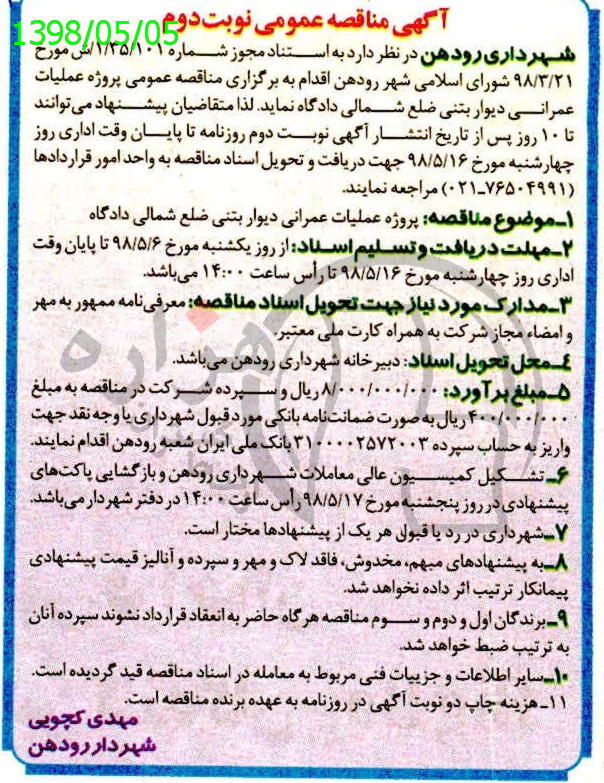 آگهی مناقصه عمومی نوبت دوم
1398/05/05
شهرداری رودهن در نظر دارد به استناد مجوز شماره ۱/۴۵/۱۰۱/ش مورخ
۹۸/۳/۲۱ شورای اسلامی شهر رودهن اقدام به برگزاری مناقصه عمومی پروژه عملیات
عمرانی دیوار بتنی ضلع شمالی دادگاه نماید. لذا متقاضیان پیشنهاد می‌توانند
تا ۱۰ روز پس از تاریخ انتشار آگهی نوبت دوم روزنامه تا پایان وقت اداری روز
چهارشنبه مورخ ۹۸/۵/۱۶ جهت دریافت و تحویل اسناد مناقصه به واحد امور قراردادها
(۷۶۵۰۴۹۹۱-۰۲۱) مراجعه نمایند.
۱-موضوع مناقصه: پروژه عملیات عمرانی دیوار بتنی ضلع شمالی دادگاه
۲-مهلت دریافت و تسلیم اسناد: از روز یکشنبه مورخ ۹۸/۵/۶ تا پایان وقت
اداری روز چهارشنبه مورخ ۹۸/۵/۱۶ تا رأس ساعت ۱۴:۰۰ می‌باشد.
۳-مدارک مورد نیاز جهت تحویل اسناد مناقصه: معرفی‌نامه ممهور به مهر
و امضاء مجاز شرکت به همراه کارت ملی معتبر.
۴-محل تحویل اسناد: دبیرخانه شهرداری رودهن می‌باشد.
۵-مبلغ برآورد: ۸/۰۰۰/۰۰۰/۰۰۰ ریال و سپرده شرکت در مناقصه به مبلغ
۴۰۰/۰۰۰/۰۰۰ ریال به صورت ضمانت‌نامه بانکی مورد قبول شهرداری یا وجه نقد جهت
واریز به حساب سپرده ۳۱۰۰۰۰۲۵۷۲۰۰۳ بانک ملی ایران شعبه رودهن اقدام نمایند.
۶- تشکیل کمیسیون عالی معاملات شهرداری رودهن و بازگشایی پاکت‌های
پیشنهادی در روز پنجشنبه مورخ ۹۸/۵/۱۷ رأس ساعت ۱۴:۰۰ در دفتر شهردار می‌باشد.
۷-شهرداری در رد یا قبول هر یک از پیشنهادها مختار است.
۸-به پیشنهادهای مبهم، مخدوش، فاقد لاک و مهر و سپرده و آنالیز قیمت پیشنهادی
پیمانکار ترتیب اثر داده نخواهد شد.
۹-برندگان اول و دوم و سوم مناقصه هرگاه حاضر به انعقاد قرارداد نشوند سپرده آنان
به ترتیب ضبط خواهد شد.
۱۰-سایر اطلاعات و جزییات فنی مربوط به معامله در اسناد مناقصه قید گردیده است.
۱۱-هزینه چاپ دو نوبت آگهی در روزنامه به عهده برنده مناقصه است.
مهدی کچویی
شهردار رودهن
هزاره